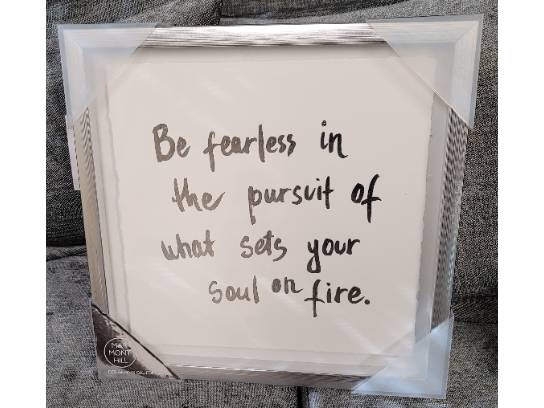 Be fearless in
the pursuit of
what sets your
soul on fire.
MONT
HILL